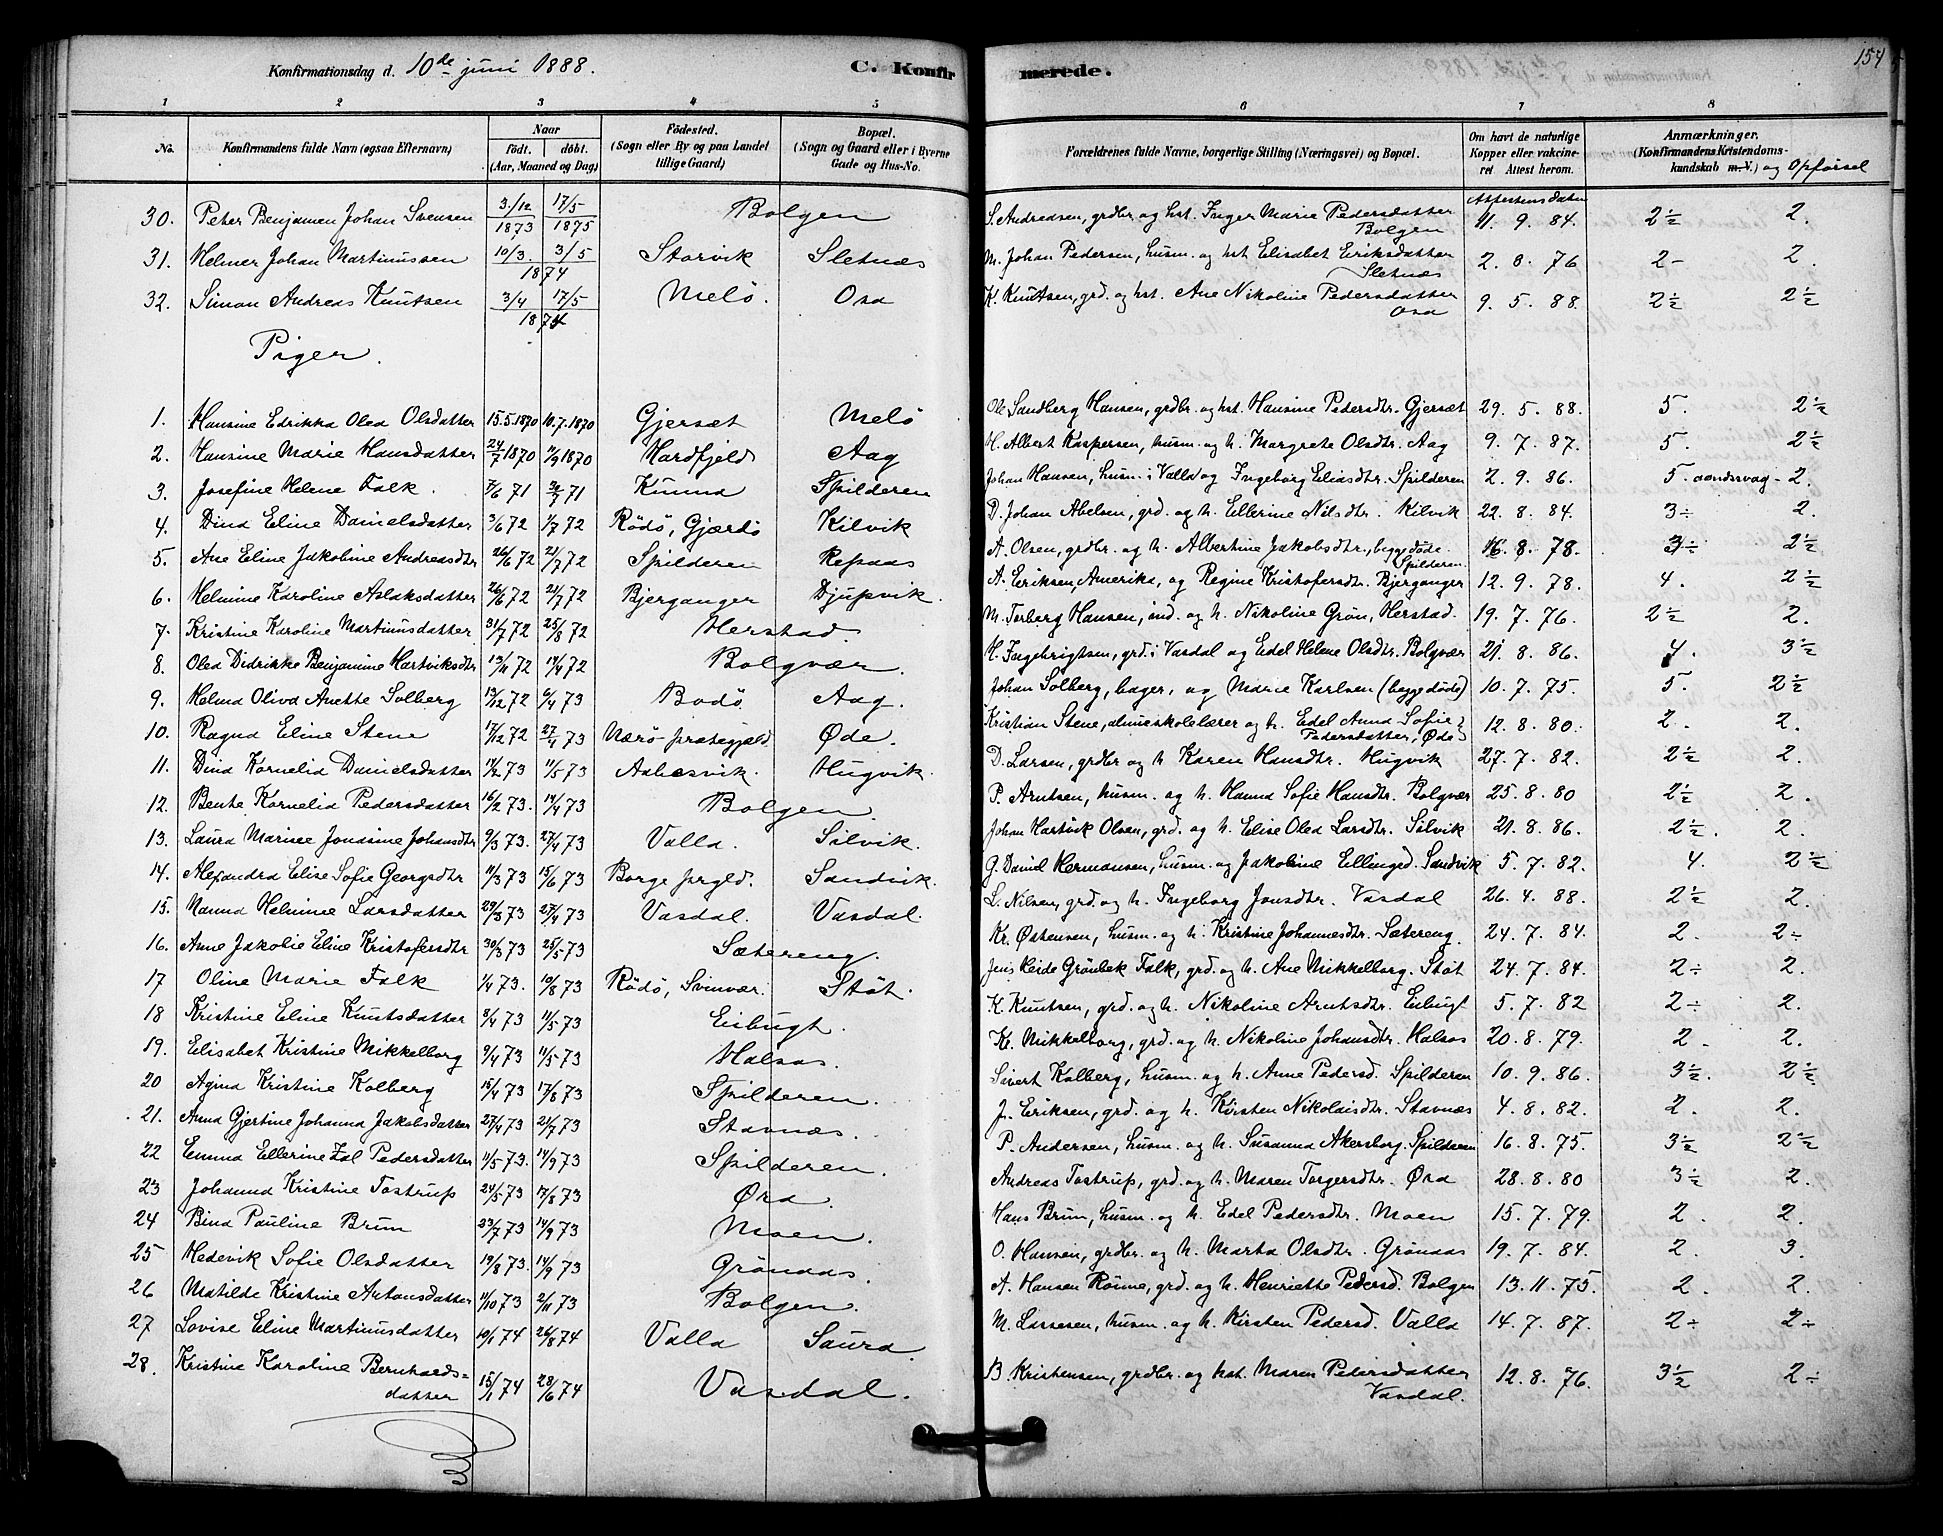 Konfirmationsdag d. 10de juni 1888. C. Konfirmerede. 154
1 2 3 4 5 6 7 8
No. Konfirmandens fulde Navn (ogsaa Efternavn) Naar født. døbt. (Aar, Maaned og Dag) Fødested. (Sogn eller By og paa Landet tillige Gaard) Bopæl. (Sogn og Gaard eller i Byerne Gade og Hus-No. Forældrenes fulde Navne, borgerlige Stilling (Næringsvei) og Bopæl. Om havt de naturlige Kopper eller vakcineret Attest herom. Anmærkninger. (Konfirmandens Kristendomskundskab m. V.) og Opførsel
Attestens datum
30. Peter Benjamen Johan Svensen 3/12 1873 17/5 1875 Bolgen S. Andreasen, grdbr. og hst. Inger Marie Pedersdatter Bolgen 11. 9. 84. 2½ 2.
31. Helmer Johan Martinussen 10/3. 3/5 1874 Storvik Sletnæs M. Johan Pedersen, husm. og hst. Elisabet Eriksdatter Sletnæs 2. 8. 76 2- 2.
32. Simon Andreas Knutsen 3/4 17/5 1874 Melö. Osa K. Knutsen, grd. og hst. Ane Nikoline Pedersdatter Osa 9. 5. 88. 2½ 2½
Piger.
1. Hansine Edrikka Olea Olsdatter 15.5.1870 10.7.1870 Gjersæt Melö Ole Sandberg Hansen, grdbr. og hst. Hansine Pedersdtr. Gjersæt 29. 5. 88. 5. 2½
2. Hansine Marie Hansdatter 24/7 1870 1870 Hardfjeld Aag H. Albert Kaspersen, husm. og h. Margrete Olsdtr. Aag 9. 7. 87. 5. 2½
3. Josefine Helene Falk. 71 71 Kunna Spilderen Johan Hansen, husm. i Valla og Ingeborg Eliasdtr. Spilderen 2. 9. 86. 5. aandssvag - 2.
4. Dina Eline Danielsdatter 3/6 72 1/7 72 Rödö, Gjærdö Kilvik D. Johan Abelsen, grd. og h. Ellerine Nilsdtr. Kilvik 22. 8. 84. 3÷ 2.
5. Ane Eline Jakobine Andreasdtr 26/6 72 21/7 72 Spilderen Repaas A. Olsen, grdbr. og h. Albertine Jakobsdtr., begge døde. Spilderen 16. 8. 78. 3÷ 2½
6. Helmine Karoline Aslaksdatter 26/6 72 21/7 72 Bjerganger Djupvik. A. Eriksen, Amerika, og Regine Kristofersdtr. Bjerganger 12. 9. 78. 4. 2½
7. Kristine Karoline Martinusdatter 31/7 72 25/8 72 Herstad. M. Torberg Hansen, ind. og h. Nikoline Grøn, Herstad. 19. 7. 76. 2½ 2.
8. Olea Didrikke Benjamine Hartviksdtr 13/11 72 72 Bolgvær. H. Ingebrigtsen, grd. i Vasdal og Edel Helene Olsdtr. Bolgvær 21. 8. 86. 4. 3½
9. Helma Oliva Anette Solberg 13/12 72 6/4 73 Bodö Aag. Johan Solberg, bager, og Marie Karlsen (begge døde) 10. 7. 75. 5. 2½
10. Ragna Eline Stene 17/12 72 27/4 73 Nærö prstegjæld Øde. Kristian Stene, almueskolelærer og h. Edel Anna Sofie Pedersdatter, Øde 12. 8. 80. 2. 2.
11. Dina Kornelia Danielsdatter 11/2 73 11/5 73 Aahesvik. Hugvik. D. Larsen, grdbr og h Karen Hansdtr. Hugvik 27. 7. 82. 2½ 2.
12. Bente Kornelia Pedersdatter 16/2 73. 14/4 73 Bolgen. P. Arntsen, husm. og h. Hanna Sofie Hansdtr. Bolgvær 25. 8. 80 2½ 2.
13. Laura Marinee Jonasine Johansdtr 9/3 73. 27/4 73 Valla. Silvik. Johan Hartvik Olsen, grd. og h. Elise Olea Larsdtr. Silvik 21. 8. 86. 2½. 2.
14. Alexandra Elise Sofie Georgsdtr 11/3 73 15/6 73 Borge prgld. Sandvik. G. Daniel Hermansen, husm. og Jakobine Ellingsd. Sandvik 5. 7. 82. 4. 2½
15. Nanna Helmine Larsdatter 29/3 73 27/4 73 Vasdal. Vasdal. L. Nilsen, grd. og h. Ingeborg Jonsdtr. Vasdal 26. 4. 88. 2½ 2.
16. Anne Jakolie Eline Kristofersdtr 30/3 73 25/5 73 Sætereng. Kr. Østensen, husm. og h. Kristine Johannesdtr. Sætereng. 24. 7. 84. 2. 2÷
17 Oline Marie Falk 1/4 73. 10/8 73 Rödö, Svinvær. Stöt. Jens Heide Grönbek Falk, grd. og h. Ane Mikkelborg. Stöt 24. 7. 84. 2÷ 2.
18 Kristine Eline Knutsdatter 8/4 73 11/5 73 Eibugt. K. Knutsen, grd. og h. Nikoline Arntsdtr. Eibugt 5. 7. 82 2÷ 2.
19. Elisabet Kristine Mikkelborg 9/4 73 11/5 73 Halsos. K. Mikkelborg, grd. og h. Nikoline Johansdtr. Halsos 20. 8. 79. 2. 2.
20 Agina Kristine Kolberg 15/4 73 17/8 73 Spilderen. Sivert Kolberg, husm. og h. Anne Pedersd. Spilderen 10. 9. 86. 3½. 2½
21. Anna Gjertine Johanna Jakobsdatter 27/4 73 21/7 73 Stavnæs. J. Eriksen, grd. og h. Kirsten Nikolaisdtr. Stavnæs 4. 8. 82. 2. 2.
22 Emma Ellerine Zal Pedersdatter 11/5 73. 14/9 73 Spilderen. P. Andersen, husm. og h. Susanna Akersborg. Spilderen 16. 8. 75. 3½ 2½
23 Johanna Kristine Tostrup 24/5 73 17/8 73 Øra. Andreas Tostrup, grd. og h. Maren Torgersdtr. Øra 28. 8. 80 3½ 2.
24 Bina Pauline Brun 23/7 73 14/9 73 Moen. Hans Brun, husm. og h. Edel Pedersdtr. Moen 15. 7. 79. 2. 2.
25 Hedevik Sofie Olsdatter 19/8 73. 14/9 73 Grönaas. O. Hansen, grdbr. og h. Marta Olsdtr. Grönaas 19. 7. 84. 2. 3.
26 Matilde Kristine Antonsdatter 11/10 73 2/11 73 Bolgen. A. Hansen Rönne, grd. og h. Henriette Pedersd. Bolgen 13. 11. 75. 2. 2.
27 Lovise Eline Martinusdatter 10/1 74 26/8 74 Valla Saura. M. Larsesen, husm. og h. Kirsten Pedersd. Valla 14. 7. 87. 2÷ 2÷
28. Kristine Karoline Bernhardsdatter 15/1 74 28/6 74 Vasdal. B. Kristensen, grdbr. og hst. Maren Pedersdatter Vasdal. 12. 8. 76. 3½ 2÷